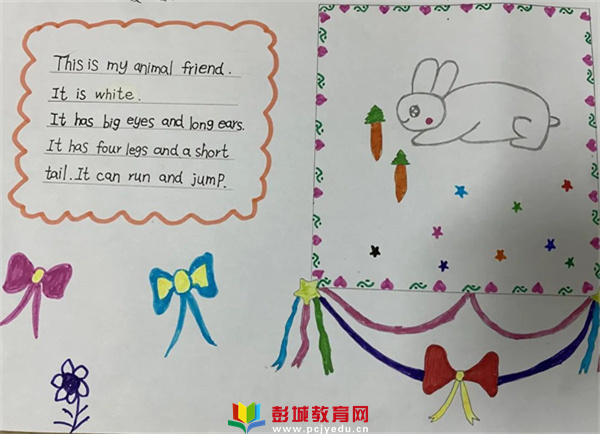 This is my animal friend.
It is white.
It has big eyes and long ears.
It has four legs and a short
tail. It can run and jump.
彭城教育网
www.pcjyedu.cn